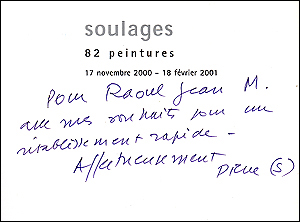 soulages
82 peintures
17 novembre 2000 - 18 février 2001
Pour Raoul Jean M.
avec mes souhaits pour un
rétablissement rapide -
Affectueusement
Pierre (S)